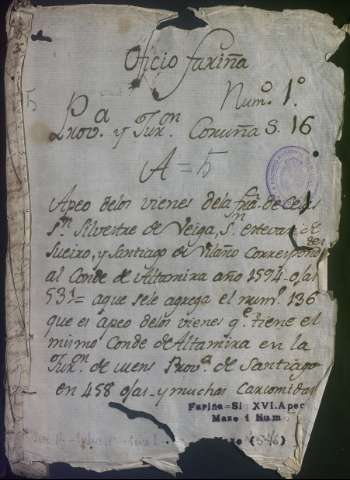 Oficio fariña
Num.º 1.º
Prov.ª y Jur.ºn Coruña S. 16
A = 5
Apeo delos vienes dela frª. de
Sn. Silvestre de Veiga, Sn. estevan de
Sueiro, y Santiago de Vilaño Correspond
al Conde de Altamira año 1594 ojas
531 = aque sele agrega el num.º 136
que es apeo delos vienes q.e tiene el
mismo Conde de Altamira en la
Jur.ºn de mens Prov.ª de Santiago
en 458 ojas - y muchas Carcomidas
Fariña=Si XVI.Apeo
Mazo 1 Num